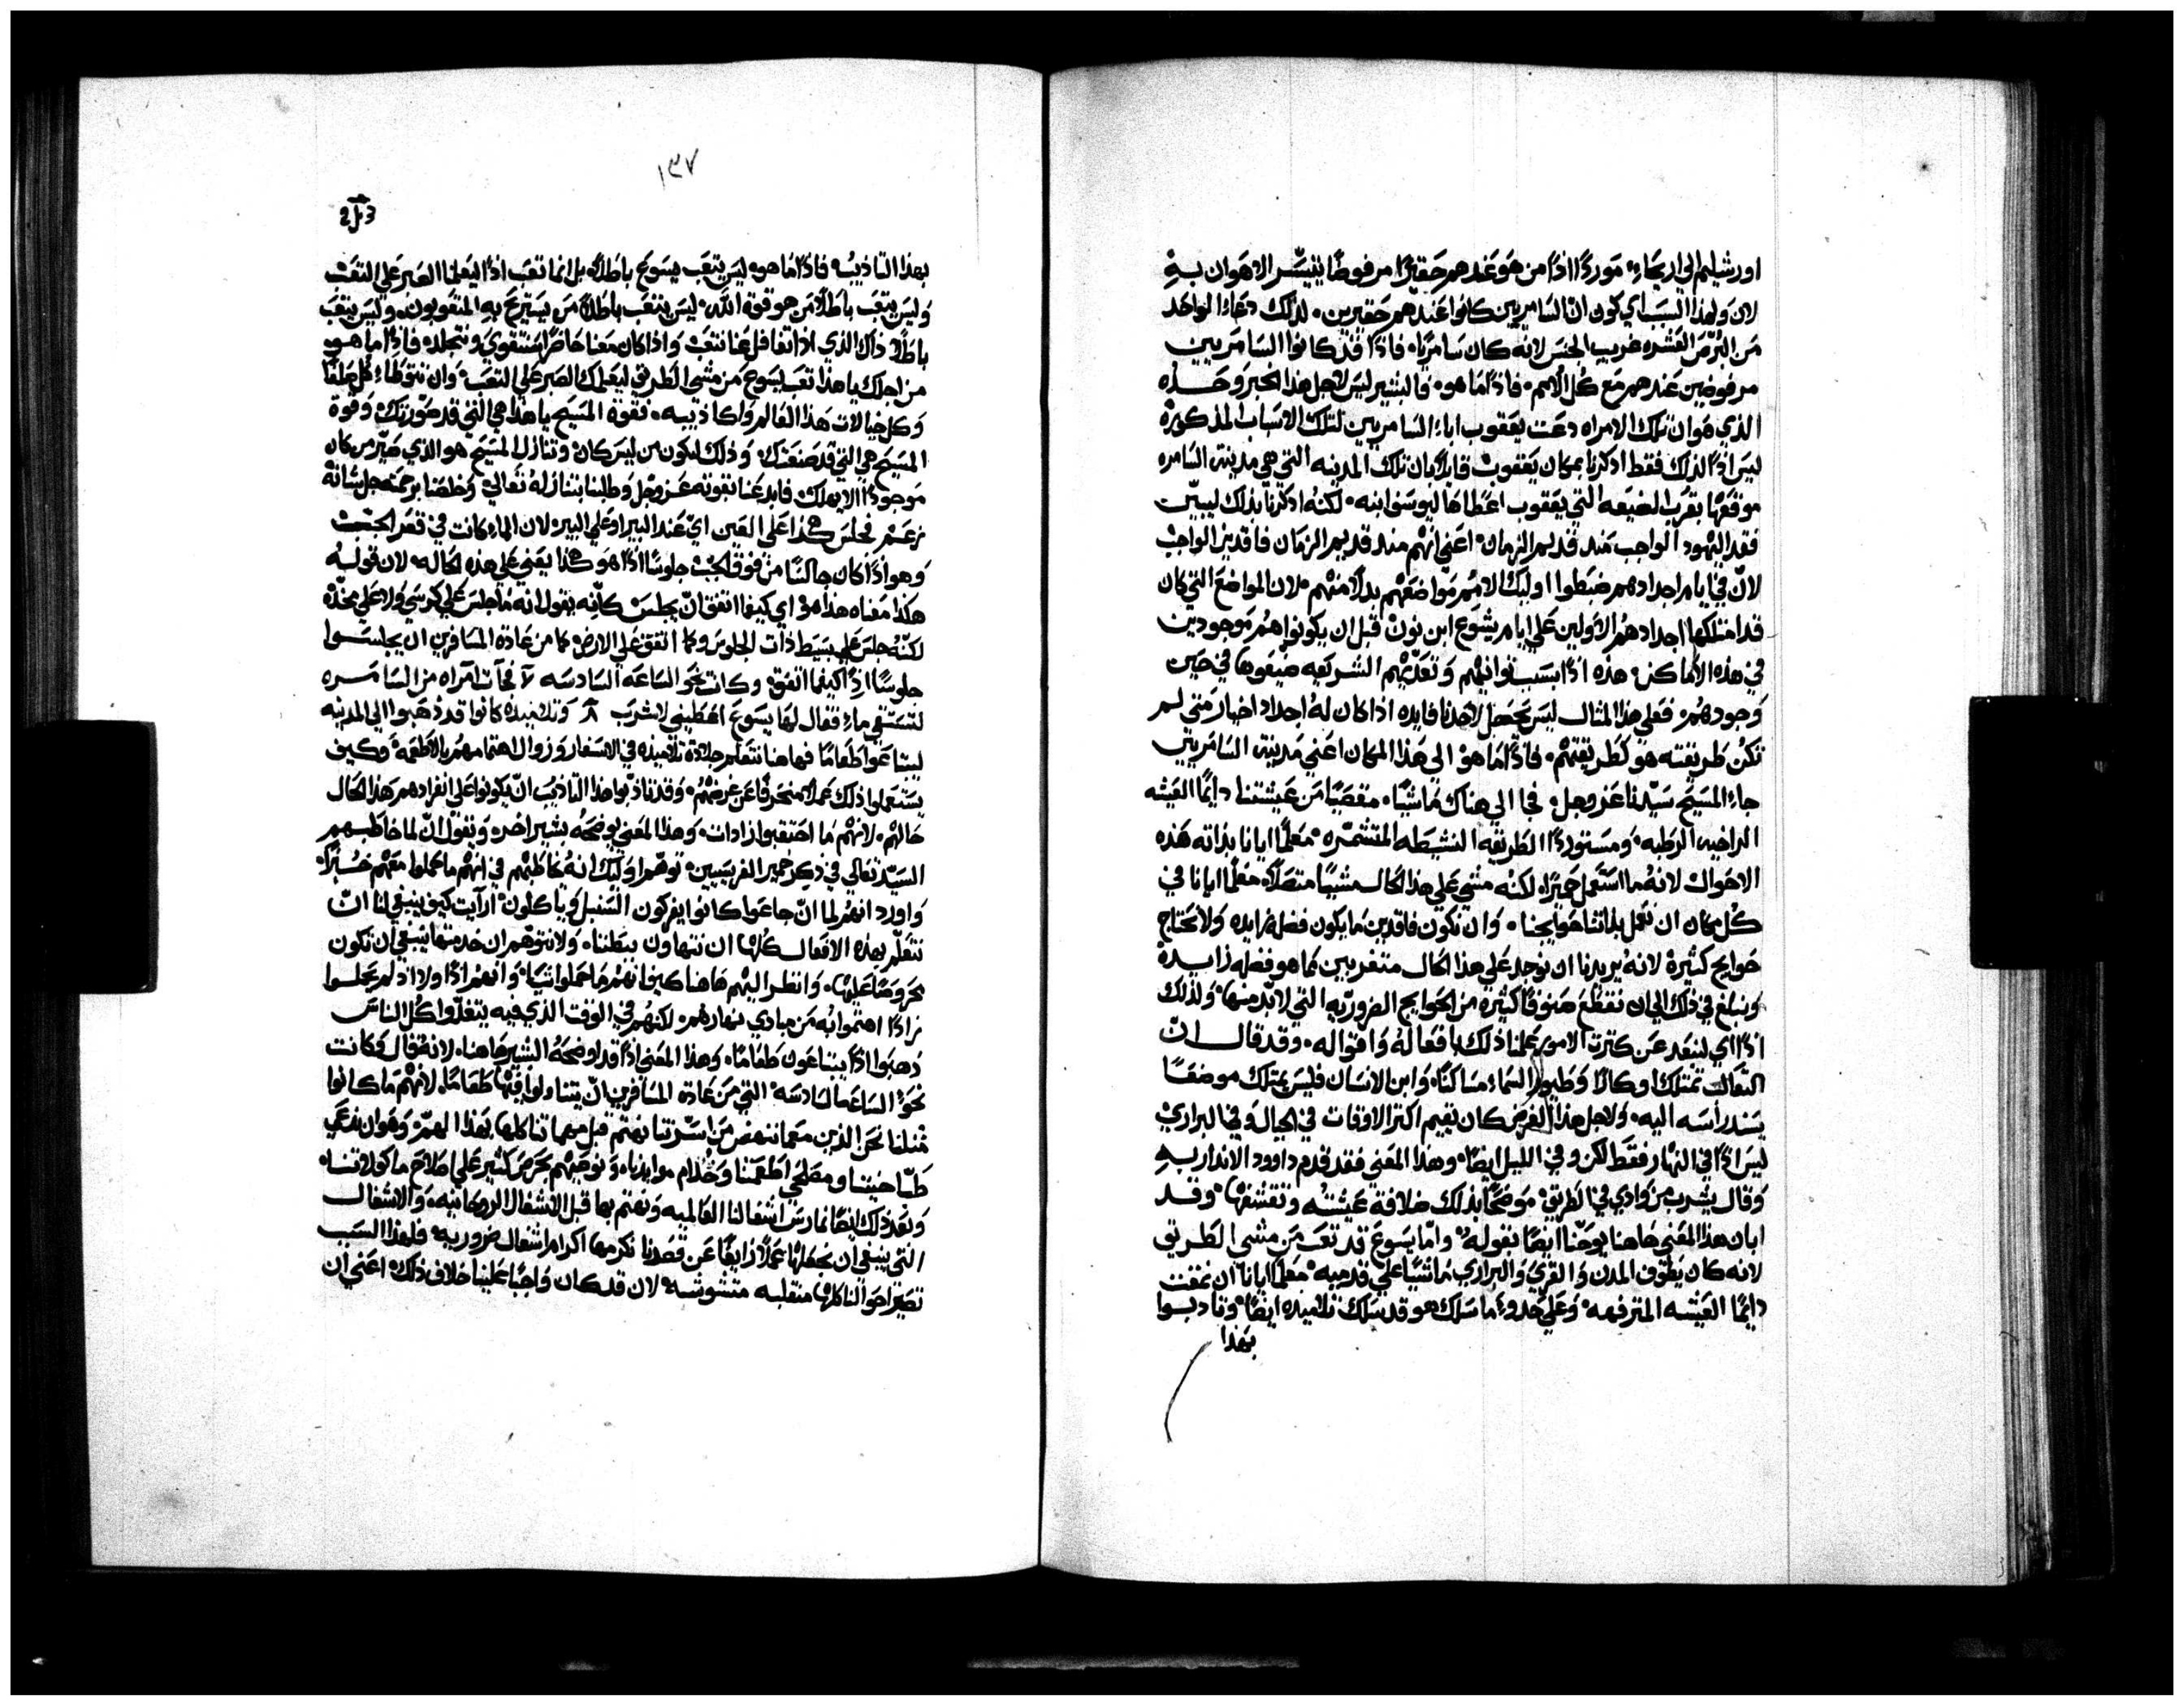 اورشيليم الي اريحاء، موردًا اذًا من هو عندهم حقيرًا مرفوضًا يتيسّر الاهوان به
لان ولهذا السبب اي كون انّ السامريين كانوا عندهم حقيرين. لذلك دعاء الواحد
من البُرّص العشره غريب الجنس لانه كان سامريًا. فاذًا قد كانوا السامريين
مرفوضين عندهم مع كل الامم. فاذًا ما هو. فالبشير ليس لاجل هذا الخبر وحده
الذي هو ان تلك الامراه دعت يعقوب اباء السامريين لتلك الاسباب المذكوره
ليس اذًا لذلك فقط اذكرنا بمكان يعقوب قايلًا بان تلك المدينه التي هي مدينة السامره
موقعها بقرب الضيعه التي يعقوب اعطاها ليوسف ابنه. لكنه اذكرنا بذلك ليبيّن
فقد اليهود الواجب منذ قديم الزمان. اعني انهم منذ قديم الزمان فاقدين الواجب
لانّ في ايام اجدادهم ضبطوا اوليك الامم مواضعهم بدلًا منهم. لان المواضع التي كان
قد امتلكها اجدادهم الاولين علي ايام يشوع ابن نون قبل ان يكونوا هم موجودين
في هذه الاماكن. هذه اذًا بسبب توانيهم وتعدّيهم الشريعه ضيعوها في حين
وجودهم. فعلي هذا المثال ليس يحصل لاحدنا فايده اذا كان له اجداد اخيار متي لم
تكن طريقته هو كطريقتهم. فاذًا ما هو الي هذا المكان اعني مدينة السامريين
جاء المسيح سيّدنا عز وجل. فجا الي هناك ماشيًا. مقصيًا من عيشتنا دايمًا العيشه
الراخيه الرطبه. ومستوردًا الطريقه النشيطه المتشمّره. معلمًا ايانا بذاته هذه
الاحوال لانه ما استعمل حميرًا. لكنه مشي علي هذا الحال مشيًا متصلًا. معلمًا ايانا في
كل مكان ان نعمل بذاتنا حوايجنا. وان نكون فاقدين ما يكون فضله زايده ولا نحتاج
حوايج كثيره لانه يريدنا ان نوجد علي هذا الحال متغربين مما هو فضله زايده
ونبلغ في ذلك الي ان نقطع صنوفًا كثيره من الحوايج الضروريه التي لا بد منها. ولذلك
اذًا اي لنبعد عن كثرت الامور علمنا ذلك بافعاله واقواله. وقد قال انّ
الثعالب تمتلك اوكارًا وطيور السماء مساكنًا. وابن الانسان فليس يمتلك موضعًا
يسند رأسه اليه. ولاجل هذا الغرض كان يقيم اكثر الاوقات في الجبال وفي البراري
ليس اذًا في النهار فقط لكن وفي الليل ايضًا. وهذا المعني فقد قدم داوود الانذار به
وقال يشرب من وادي في الطريق. موضحًا بذلك ضلافة عيشته وتقشفها. وقد
ابان هذا المعني هاهنا يوحنّا ايضًا بقوله. وامّا يسوع قد تعب من مشي الطريق
لانه كان يطوف المدن والقري والبراري ماشيًا علي قدميه. معلمًا ايانا ان نمقت
دايمًا العيشه المترفهه. وعلي حذوء ما سلك هو قد سلك تلاميذه ايضًا. وتادبوا
بهذا
١٣٧
بهذا التاديب. فاذًا ما هو. ليس يتعب يسوع باطلًا. بل انما تعب اذًا ليعلمنا الصبر علي التعب
وليس يتعب باطلًا من هو قوة الله. ليس يتعب باطلًا من يستريح به المتعوبون. وليس يتعب
باطلًا ذاك الذي اذا تغافل عنا نتعب واذا كان معنا حاضرًا نتقوي ونتجلد. فاذًا ما هو
من اجلك يا هذا تعب يسوع من مشي الطريق ليعلمك الصبر علي التعب. وان نتوطاء كل
وكل خيالات هذا العالم واكاذيبه. فقوة المسيح يا هذا هي التي قد صورتك. وقوة
المسيح هي التي قد صنعتك. وذلك ليكون من ليس كان. وتنازل المسيح هو الذي صيّر من كان
موجودًا الا يهلك. فابدعنا بقوته عز وجل وطلبنا بتنازله تعالي. وخلصنا برحمته جل شانه
زعم فجلس هكذا علي العين اي عند البير او علي البير. لان الماء كانت في قعر الجب
وهو اذًا كان جالسًا من فوق الجب جلوسًا اذًا هو هكذا يعني علي هذه الحاله. لان قوله
هكذا معناه هذا هو. اي كيفما اتفق انّ يجلس كانّه يقول انه ما جلس علي كرسي ولا علي مخدّه
لكنّه جلس علي بسيط ذات الجلوس وكما اتفق علي الارض. كما من عادة المسافرين ان يجلسوا
جلوسًا اذًا كيفما اتفق. وكانت نحو الساعه السادسه فجآت آمراه من السامره
لتستقي ماء. فقال لها يسوع اعطيني لاشرب وتلاميذه كانوا قد ذهبوا الي المدينه
ليبتاعوا طعامًا فهاهنا نتعلم جلادة تلاميذه في الاسفار وزوال اهتمامهم بالاطعمه. وكيف
يستعملوا ذلك عملًا منحرفًا عن غرضهم. وقد تادّبوا هذا التاديب انّ يكونوا علي انفرادهم هذا الحال
حالهم. لانهم ما احتقبوا زادات. وهذا المعني يوضحه بشير اخر. ويقول انّ لما خاطبهم
السيّد تعالي في ذكر خمير الفريسيين. توهّموا اوليك انه خاطبهم في انهم ما حملوا معهم خبزًا.
واورد انهم لما انّ جاعوا كانوا يفركون السنبل وياكلون. ارآيت كيف ينبغي لنا انّ
نتعلّم بهذه الافعال كلها ان نتهاون ببطننا. ولا نتوّهم ان خدمتها ينبغي ان نكون
محروصًا عليها. وانظر اليهم هاهنا كيف انهم ما حملوا شيًا. وانهم اذًا ولا اذ لم يحملوا
زادًا اهتموا به من مبادي نهارهم. لكنهم في الوقت الذي فيه يتغدّوا كل الناس
ذهبوا اذًا يبتاعون طعامًا. وهذا المعني اذًا قد اوضحه البشير هاهنا. لانه قال وكانت
نحو الساعه السادسه التي من عادة المسافرين انّ يتناولوا فيها طعامًا. لانهم ما كانوا
مثلنا نحن الذين معما ننهض من اسرّتنا نهتم قبل مهماتنا كلها بهذا الهمّ وهو ان ندعي
طبّاخيننا ومصلحي اطعمتنا وخدام موايدنا. ونوصيهم بحرص كثير علي اصلاح ماكولاتنا.
وبعد ذلك ايضًا نمارس اشغالنا العالميه ونهتم بها قبل الاشغال الروحانيه. والاشغال
التي ينبغي ان نجعلها عملًا زايغًا عن قصدنا نكرمها اكرام اشغال ضروريه. فلهذا السبب
تصير احوالنا كلها منقلبه متشوشه. لان قد كان واجبًا علينا خلاف ذلك. اعني ان